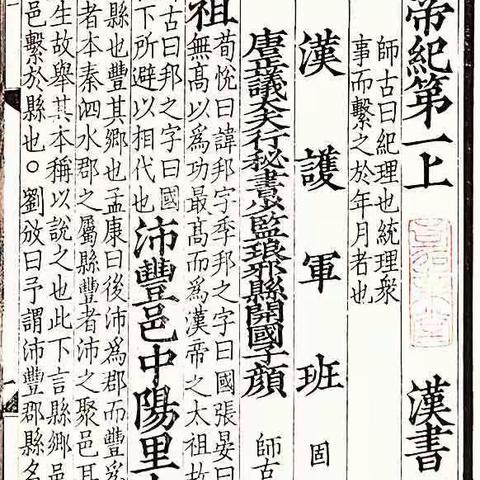 帝紀第一上 漢書
師古曰紀理也統理衆
事而繫之於年月者也
漢護軍班固
唐正議大夫行秘書少監琅邪縣開國子顔師古
祖
荀悅曰諱邦字季邦之字曰國張晏曰
無髙以爲功最髙而爲漢帝之太祖故
古曰邦之字曰國
下所避以相代也
沛豐邑中陽里
縣也豐其鄉也孟康曰後沛爲郡而豐爲
者本秦泗水郡之屬縣豐者沛之聚邑耳
生故舉其本稱以說之也此下言縣鄉邑
邑繫於縣也。劉攽曰予謂沛豐郡縣名